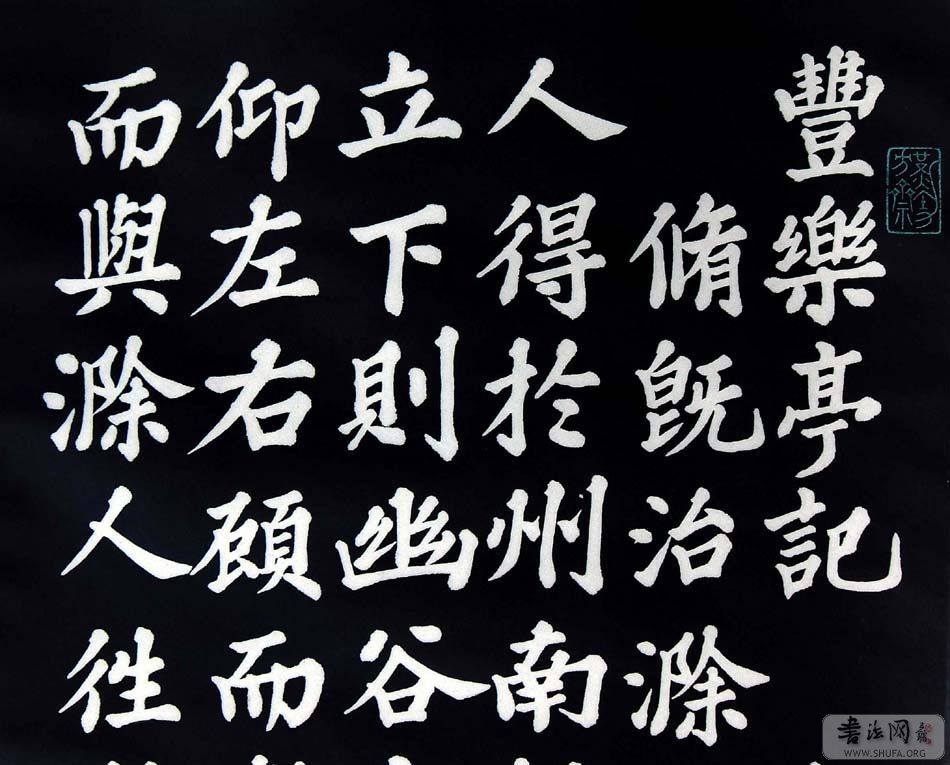 豐樂亭記
脩既治滁
人得於州南
立下則幽谷
仰左右顧而
而與滁人徃
书法网
WWW.SHUFA.ORG